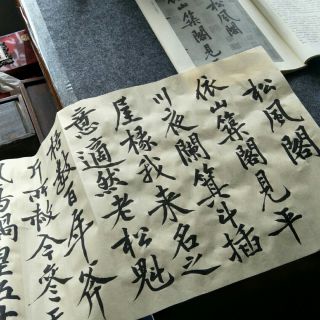 松風閣
依山築閣見平
川夜闌箕斗插
屋椽我来名之
意適然老松魁
梧數百年斧
斤所赦今參天
媧皇五
松風閣
依山築閣見